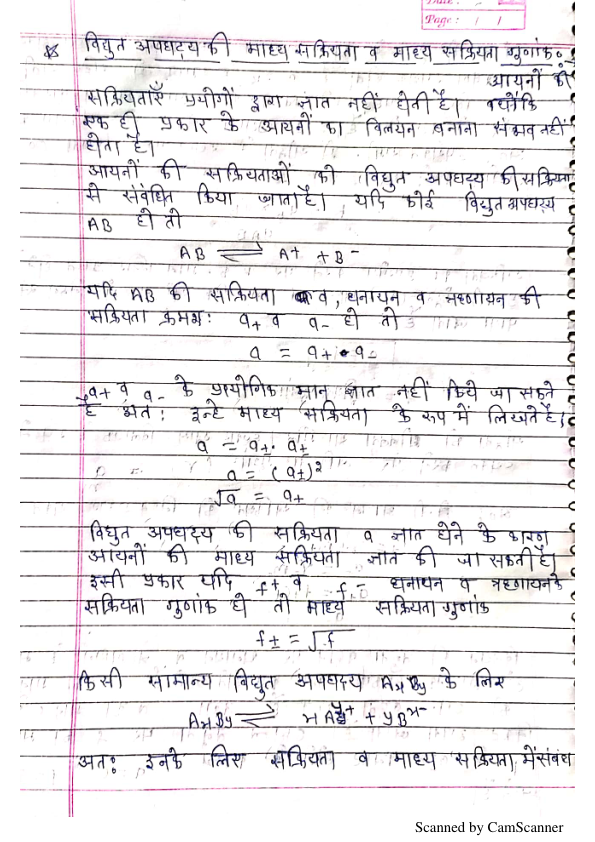 Page : / /
विद्युत अपघट्य की माध्य सक्रियता व माध्य सक्रियता गुणांक :
आयनों की
सक्रियताएँ प्रयोगों द्वारा ज्ञात नहीं होती है। क्योंकि
एक ही प्रकार के आयनों का विलयन बनाना संभव नहीं
होता है।
आयनों की सक्रियताओं को विद्युत अपघट्य की सक्रियता
से संबंधित किया जाता है। यदि कोई विद्युत अपघट्य
AB हो तो
AB ⇌ A+ + B-
यदि AB की सक्रियता व, धनायन व ऋणायन की
सक्रियता क्रमश: a+ व a- हो तो
a = a+ • a-
a+ व a- के प्रायोगिक मान ज्ञात नहीं किये जा सकते
है अत: इन्हे माध्य सक्रियता के रूप में लिखते है।
a = a± . a±
a = (a±)²
√a = a±
विद्युत अपघट्य की सक्रियता व ज्ञात होने के कारण
आयनों की माध्य सक्रियता ज्ञात की जा सकती है।
इसी प्रकार यदि f+ व f- धनायन व ऋणायन के
सक्रियता गुणांक हो तो माध्य सक्रियता गुणांक
f± = √f
किसी सामान्य विद्युत अपघट्य AxBy के लिए
AxBy ⇌ xAy+ + yBx-
अत: इनके लिए सक्रियता व माध्य सक्रियता में संबंध
Scanned by CamScanner